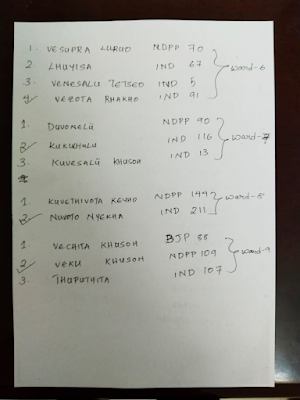 1. VESUPRA LURUO NDPP 70
2. LHUYISA IND 67
3. VENESALU TETSEO IND 5
4. VEBOTA RHAKHO IND 91
Ward-6
1. DUVOMELÜ NDPP 90
2. KUKUHALU IND 116
3. KUVESALÜ KHUSOH IND 13
Ward-7
1. KUVETHIVOTA KEYHO NDPP 144
2. NUVOTO NYEKHA IND 211
Ward-8
1. VECHITA KHUSOH BJP 38
2. VEKU KHUSOH NDPP 109
3. THUPUTHITA IND 107
Ward-9